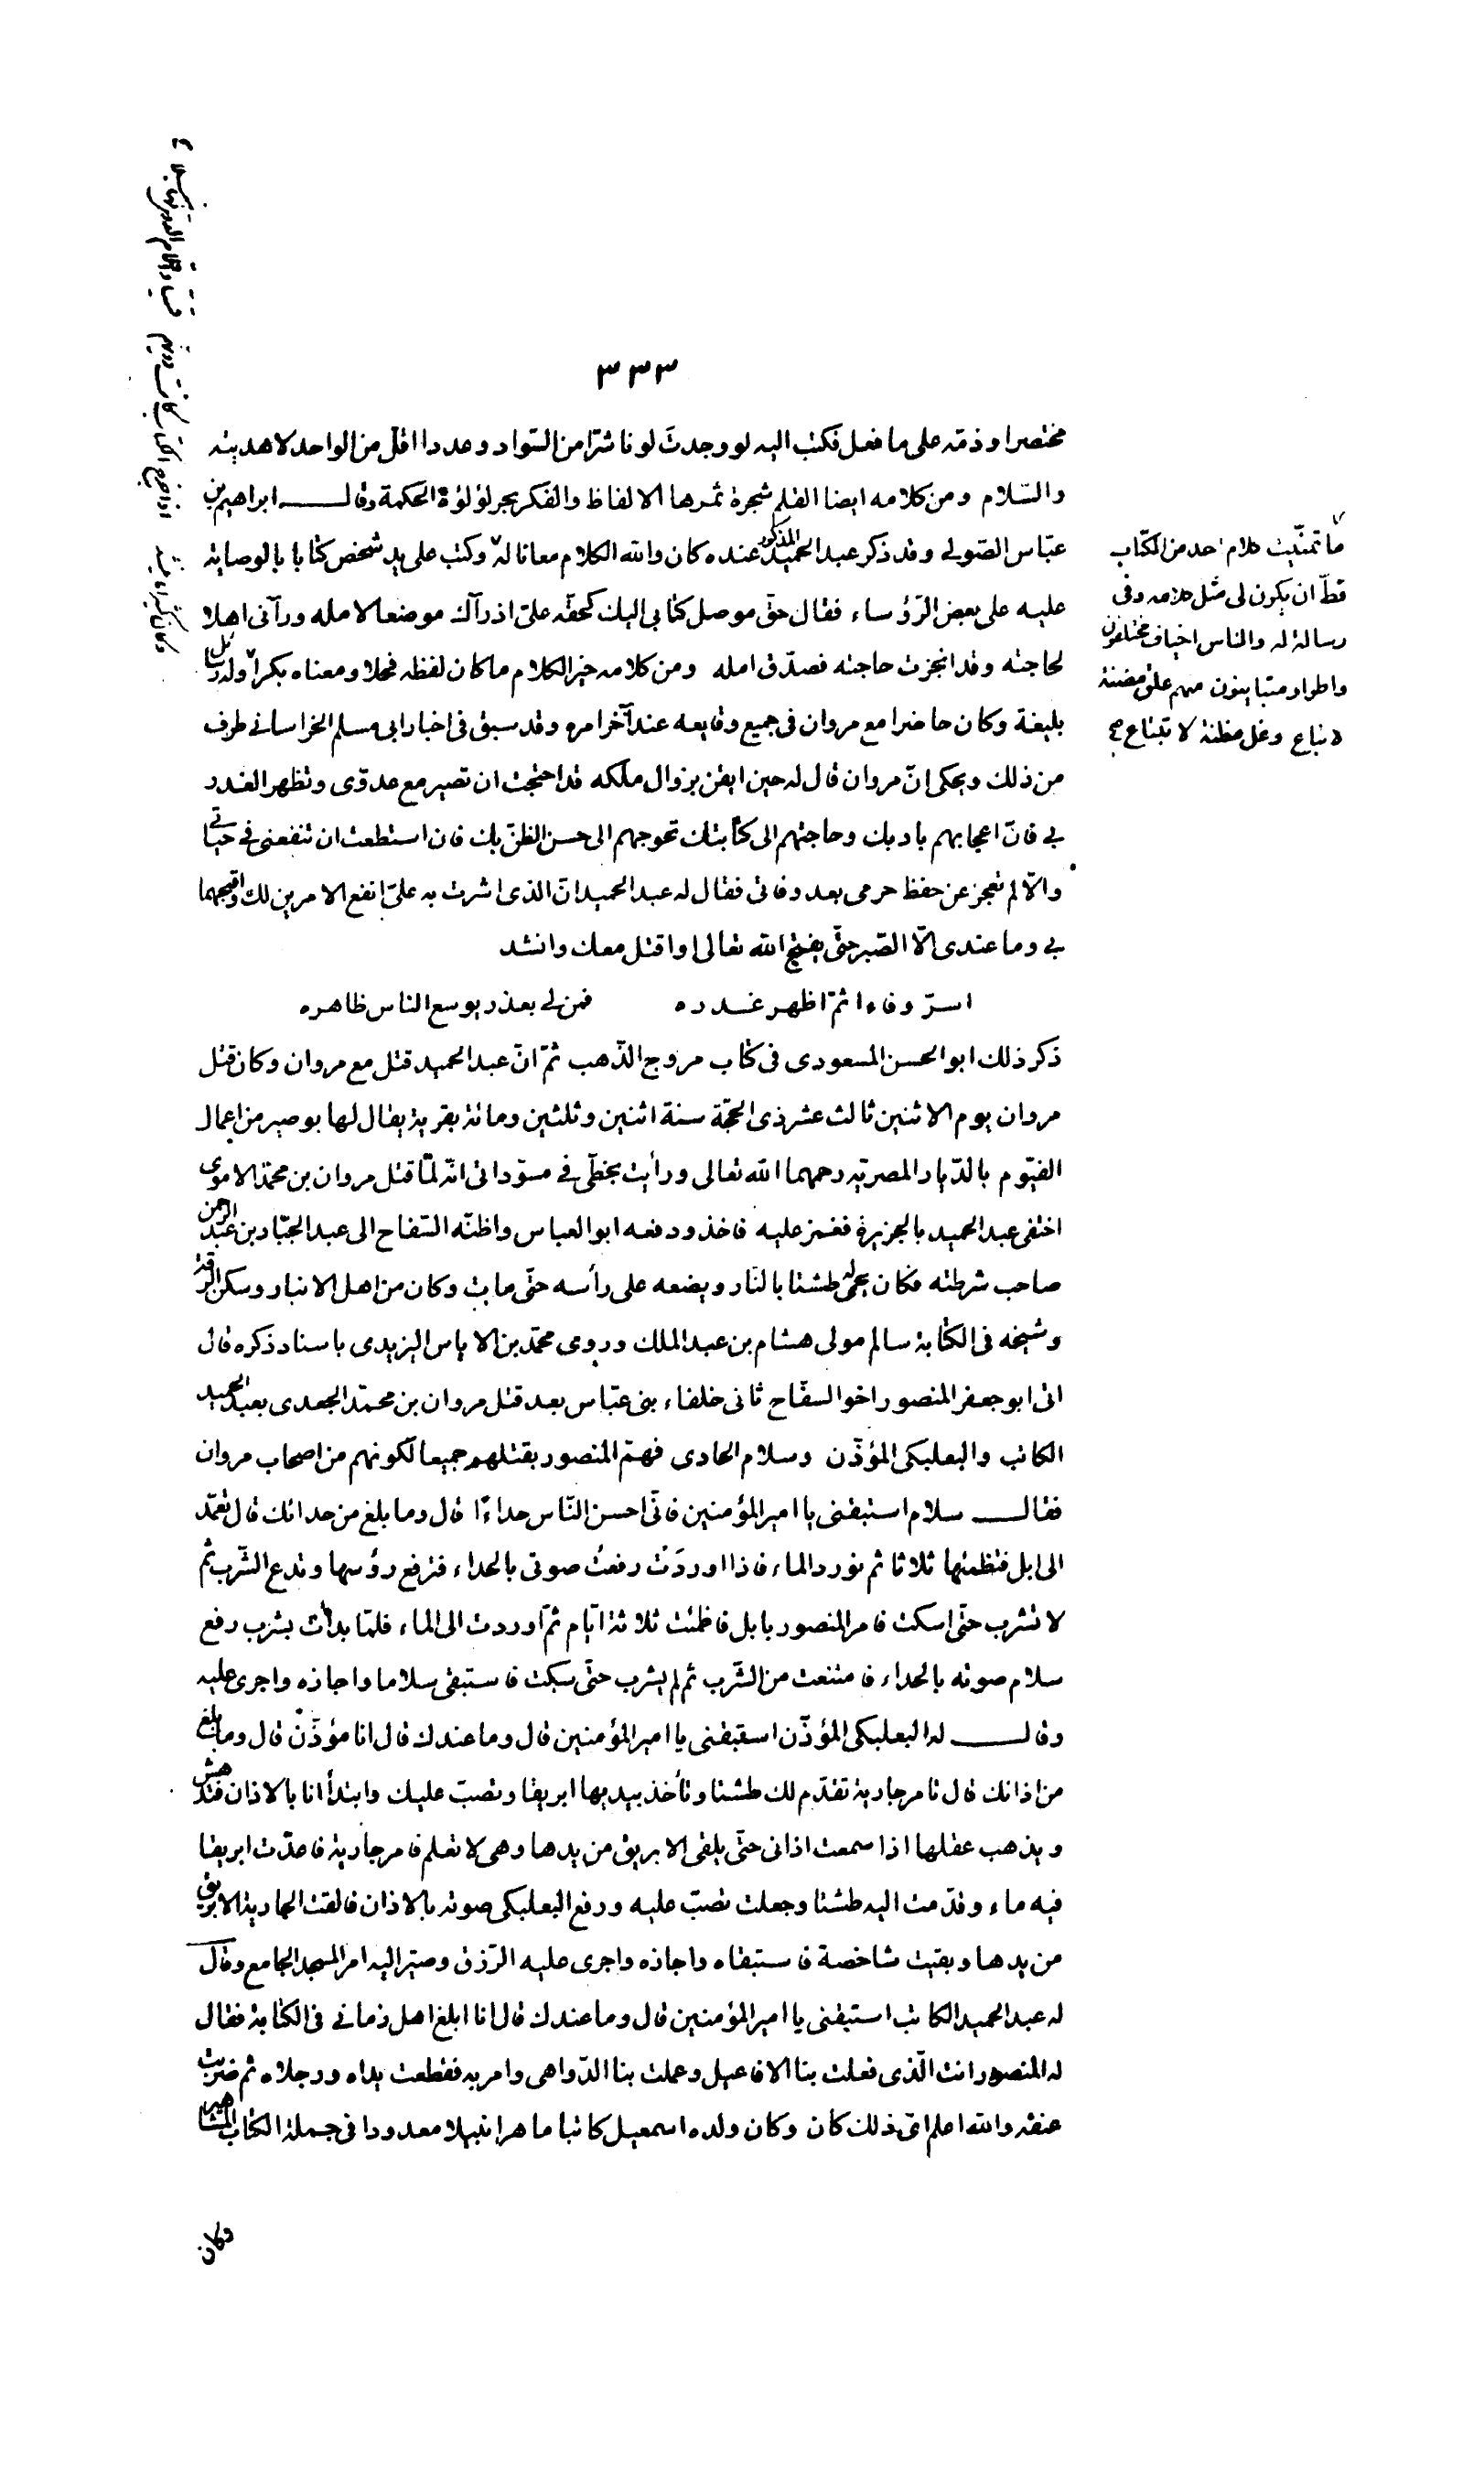 ٣٣٣
مختصرا وذمّه على ما فعل فكتب اليه لو وجدتَ لونا شرّا من السّواد وعددا اقلّ من الواحد لاهديته
والسّلام ومن كلامه ايضا القلم شجرة ثمرها الالفاظ والفكر بحر لؤلؤة الحكمة وقال ابراهيم بن
عبّاس الصّولي وقد ذكر عبد الحميد المذكور عنده كان والله الكلام معانا له وكتب على يد شخص كتابا بالوصاية
عليه على بعض الرّؤساء فقال حقّ موصل كتابي اليك كحقّه علىّ اذ رآك موضعا لامله ورآنى اهلا
لحاجته وقد انجزت حاجته فصدّق امله ومن كلامه خير الكلام ما كان لفظه فحلا ومعناه بكرا وله رسائل
بليغة وكان حاضرا مع مروان فى جميع وقايعه عند آخر امره وقد سبق فى اخبار ابى مسلم الخراسانى طرف
من ذلك ويحكى انّ مروان قال له حين ايقن بزوال ملكه قد احتجت ان تصير مع عدوّى وتظهر الغدر
بي فانّ اعجابهم بادبك وحاجتهم الى كتابتك تحوجهم الى حسن الظنّ بك فان استطعت ان تنفعنى في حياتي
والّا لم تعجز عن حفظ حرمى بعد وفاتى فقال له عبد الحميد انّ الذى اشرت به علىّ انفع الامرين لك واقبحهما
بي وما عندى الّا الصّبر حتّى يفتح الله تعالى او اقتل معك وانشد
اسرّ وفاء ثمّ اظهر غدره فمن لي بعذر يوسع الناس ظاهره
ذكر ذلك ابو الحسن المسعودى فى كتاب مروج الذّهب ثمّ انّ عبد الحميد قتل مع مروان وكان قتل
مروان يوم الاثنين ثالث عشر ذى الحجّة سنة اثنين وثلثين ومائة بقرية يقال لها بوصير من اعمال
الفيّوم بالدّيار المصريّه رحمهما الله تعالى ورأيت بخطّى في مسوّداتى انّه لمّا قتل مروان بن محمّد الاموى
اختفى عبد الحميد بالجزيرة فغمز عليه فاخذ ودفعه ابو العباس واظنّه السّفاح الى عبد الجبّار بن عبد الرحمن
صاحب شرطته فكان يحمى له طشتا بالنّار ويضعه على رأسه حتّى مات وكان من اهل الانبار وسكن الرقة
وشيخه فى الكتابة سالم مولى هشام بن عبد الملك وروى محمّد بن الاياس اليزيدى باسناد ذكره قال
اتى ابو جعفر المنصور اخو السفّاح ثانى خلفاء بنى عبّاس بعد قتل مروان بن محمّد الجعدى بعبد الحميد
الكاتب والبعلبكى المؤذّن وسلام الحادى فهمّ المنصور بقتلهم جميعا لكونهم من اصحاب مروان
فقال سلام استبقنى يا امير المؤمنين فانّى احسن النّاس حداءً قال وما بلغ من حدائك قال تعمّد
الى ابل فتظمئها ثلاثا ثم تورد الماء فاذا اوردَتْ رفعتُ صوتى بالحداء فترفع رؤسها وتدع الشّرب ثم
لا تشرب حتّى اسكت فامر المنصور بابل فاظمئت ثلاثة ايّام ثمّ اوردت الى الماء فلمّا بدأت بشرب رفع
سلام صوته بالحداء فامتنعت من الشّرب ثم لم يشرب حتّى سكت فاستبقى سلاما واجازه واجرى عليه
وقال له البعلبكى المؤذّن استبقنى يا امير المؤمنين قال وما عندك قال انا مؤذّن قال وما بلغ
من اذانك قال تامر جارية تقدّم لك طشتا وتأخذ بيديها ابريقا وتصبّ عليك وابتدأ انا بالاذان فتدهش
ويذهب عقلها اذا سمعت اذانى حتّى يلقى الابريق من يدها وهى لا تعلم فامر جارية فاعدّت ابريقا
فيه ماء وقدّمت اليه طشتا وجعلت تصبّ عليه ورفع البعلبكى صوته بالاذان فالقت الجارية الابريق
من يدها وبقيت شاخصة فاستبقاه واجازه واجرى عليه الرّزق وصيّر اليه امر المسجد الجامع وقال
له عبد الحميد الكاتب استبقنى يا امير المؤمنين قال وما عندك قال انا ابلغ اهل زمانى فى الكتابة فقال
له المنصور انت الّذى فعلت بنا الافاعيل وعملت بنا الدّواهى وامر به فقطعت يداه ورجلاه ثم ضربت
عنقه والله اعلم اىّ ذلك كان وكان ولده اسمعيل كاتبا ماهرا نبيلا معدودا فى جملة الكتّاب المشاهير
وكان
ما تمنّيت كلام احد من الكتّاب
قطّ ان يكون لى مثل كلامه وفى
رسالة له والناس اخياف مختلفون
واطوار متباينون منهم علق مضنة
لا يباع وغل مظنة لا يبتاع صح